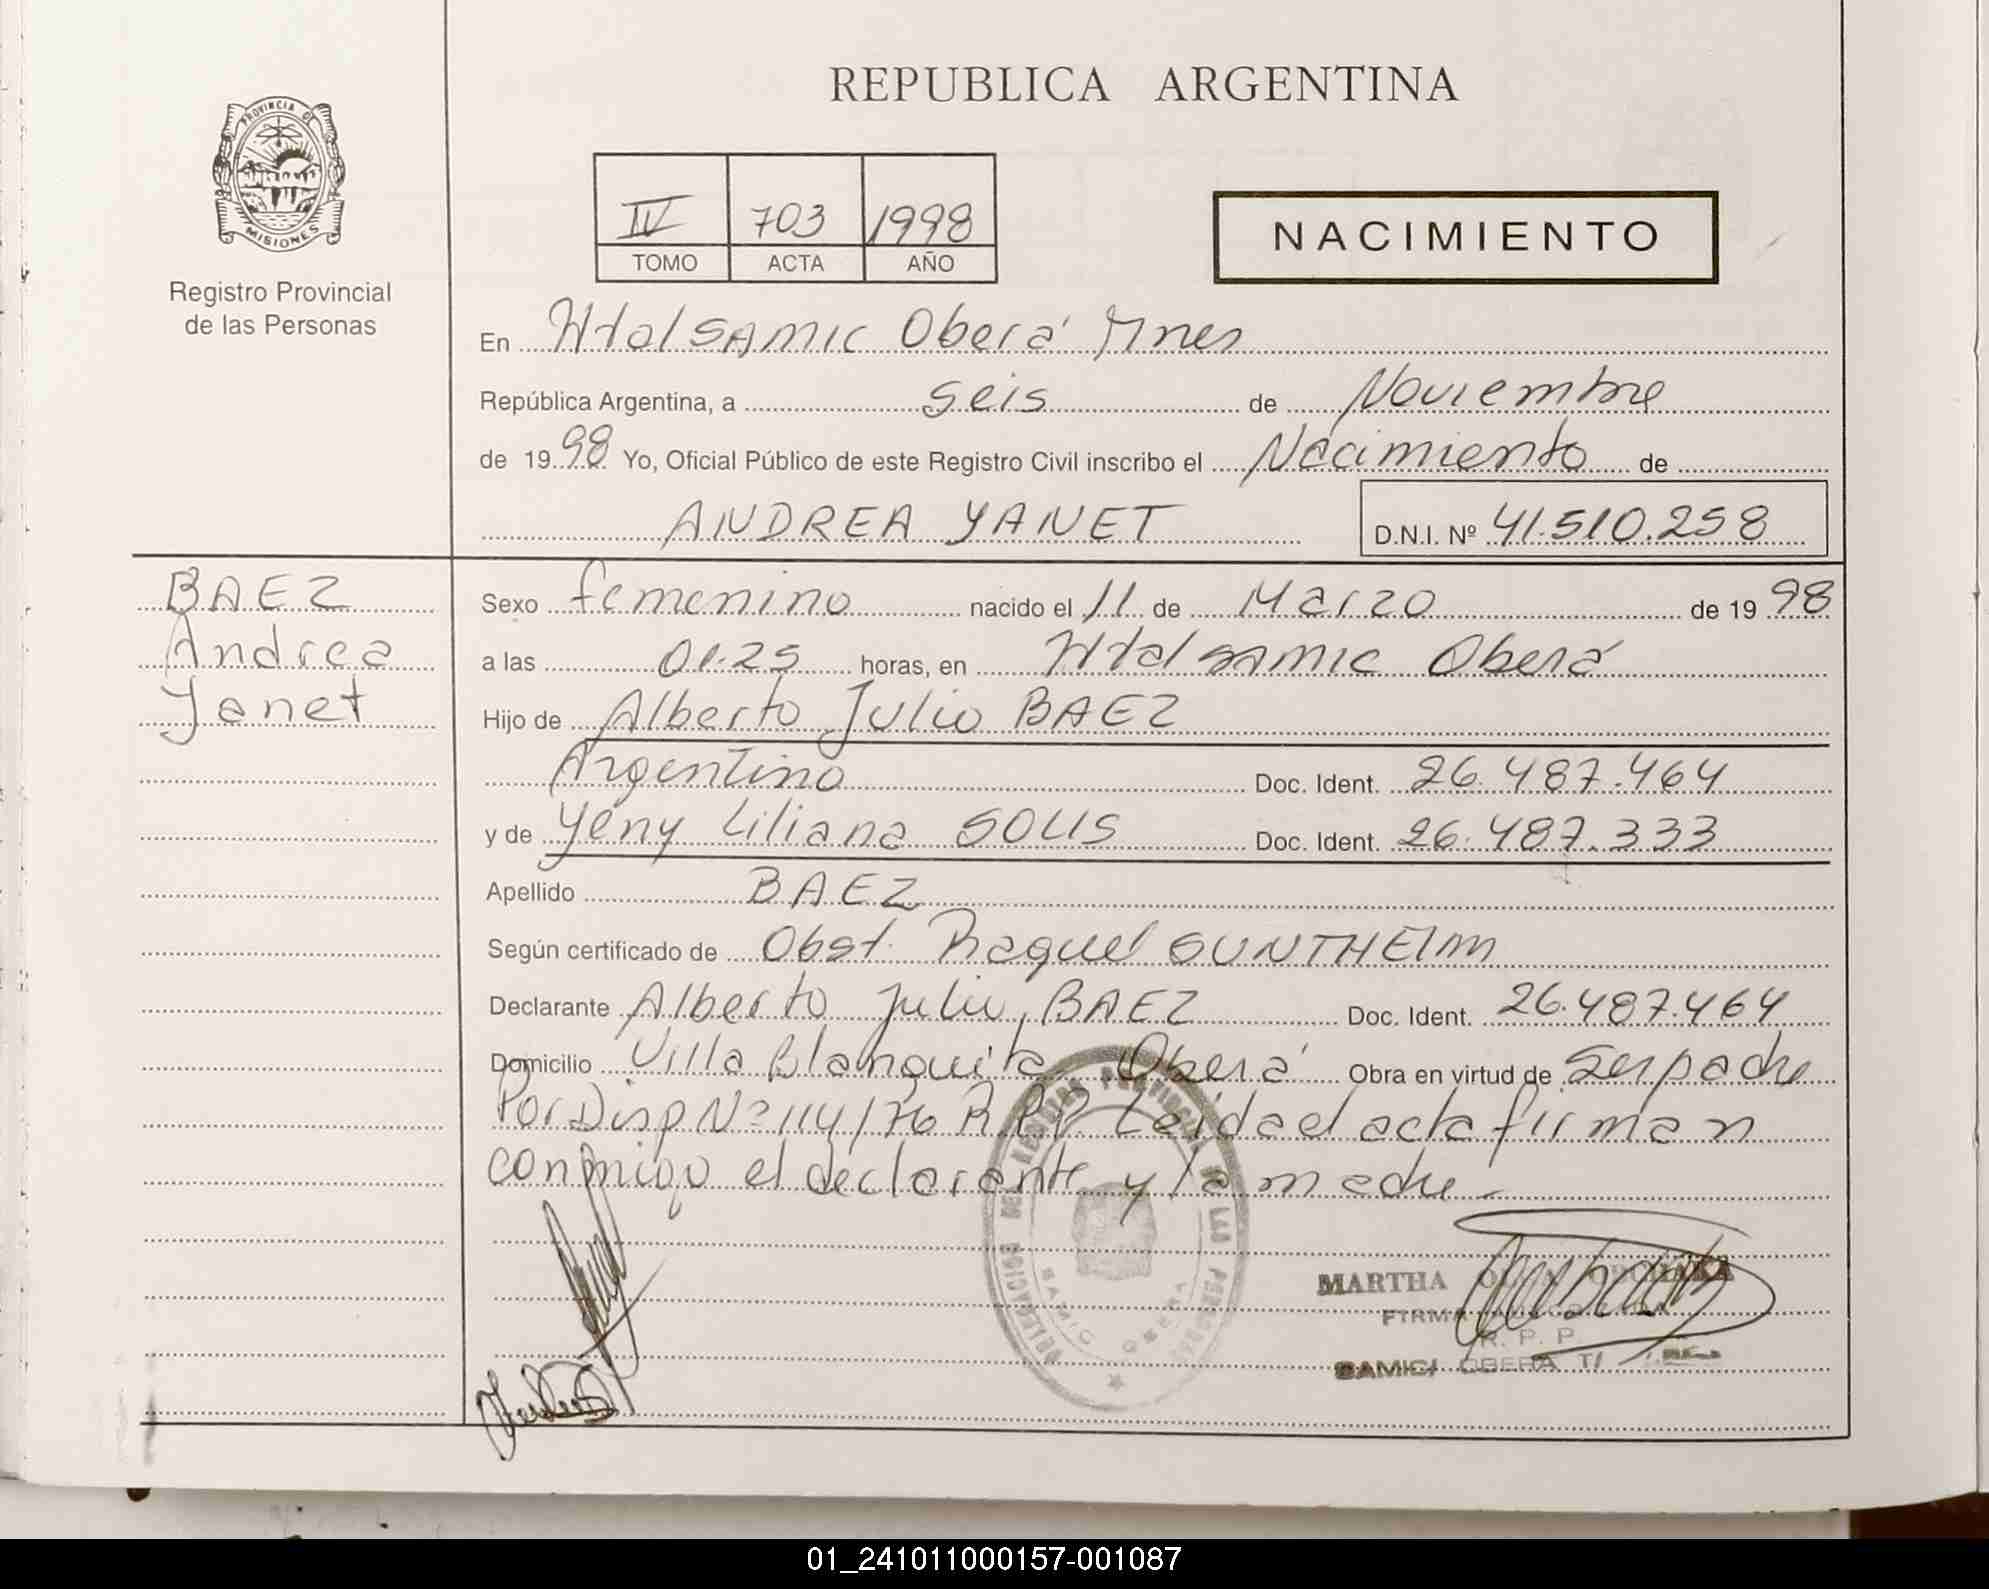 REPUBLICA ARGENTINA
PROVINCIA DE
MISIONES
Registro Provincial
de las Personas
IV 703 1998
TOMO ACTA AÑO
NACIMIENTO
En Htal SAMIC Oberá Mnes
República Argentina, a seis de Noviembre
de 1998 Yo, Oficial Público de este Registro Civil inscribo el Nacimiento de
ANDREA YANET D.N.I. Nº 41.510.258
BAEZ
Andrea
Yanet
Sexo femenino nacido el 11 de Marzo de 1998
a las 01.25 horas, en Htal SAMIC Oberá
Hijo de Alberto Julio BAEZ
Argentino Doc. Ident. 26.487.464
y de Yeny Liliana SOLIS Doc. Ident. 26.487.333
Apellido BAEZ
Según certificado de Obst. Raquel SUNTHEIM
Declarante Alberto Julio BAEZ Doc. Ident. 26.487.464
Domicilio Villa Blanquita Oberá Obra en virtud de ser padre
Por Disp Nº 114/76 R.P.P. Leida el acta firman
conmigo el declarante y la madre.
DELEGACION DEL REGISTRO PROVINCIAL DE LAS PERSONAS
SAMIC OBERA
MARTHA
FIRMA
R. P. P.
SAMIC OBERA
01_241011000157-001087